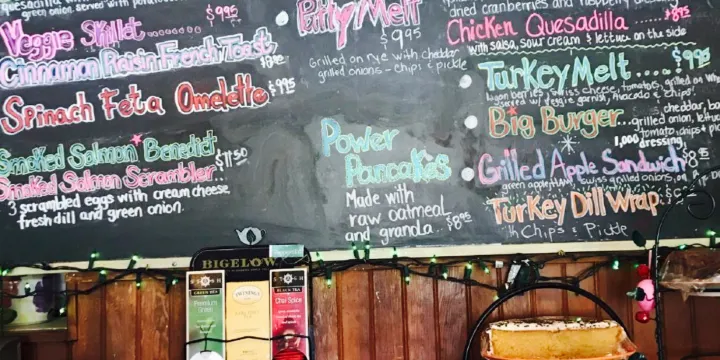 green onion. Served with
$9.95
Veggie Skillet........
Cinnamon Raisin French Toast
Spinach Feta Omelette $9.95
Smoked Salmon Benedict
Smoked Salmon Scrambler.. $11.50
3 scrambled eggs with cream cheese
fresh dill and green onion.
Patty Melt
$9.95
Grilled on rye with cheddar
grilled onions - chips & pickle
Power
Pancakes
Made with
raw oatmeal
and granola... $8.95
dried cranberries and
Chicken Quesadilla
with salsa, sour cream & lettuce on the side
Turkey Melt.... $9.95
swiss cheese, tomatoes, grilled on
served w/ veggie garnish, avocado & chips!
Big Burger... cheddar,
grilled onion,
tomato, chips &
1,000 dressing.
Grilled Apple Sandwich $8.95
green apple, ham, swiss, grilled onions, on
Turkey Dill Wrap
with Chips & Pickle
BIGELOW
GREEN TEA
Premium
Green
TWININGS
BLACK TEA
Chai Spice